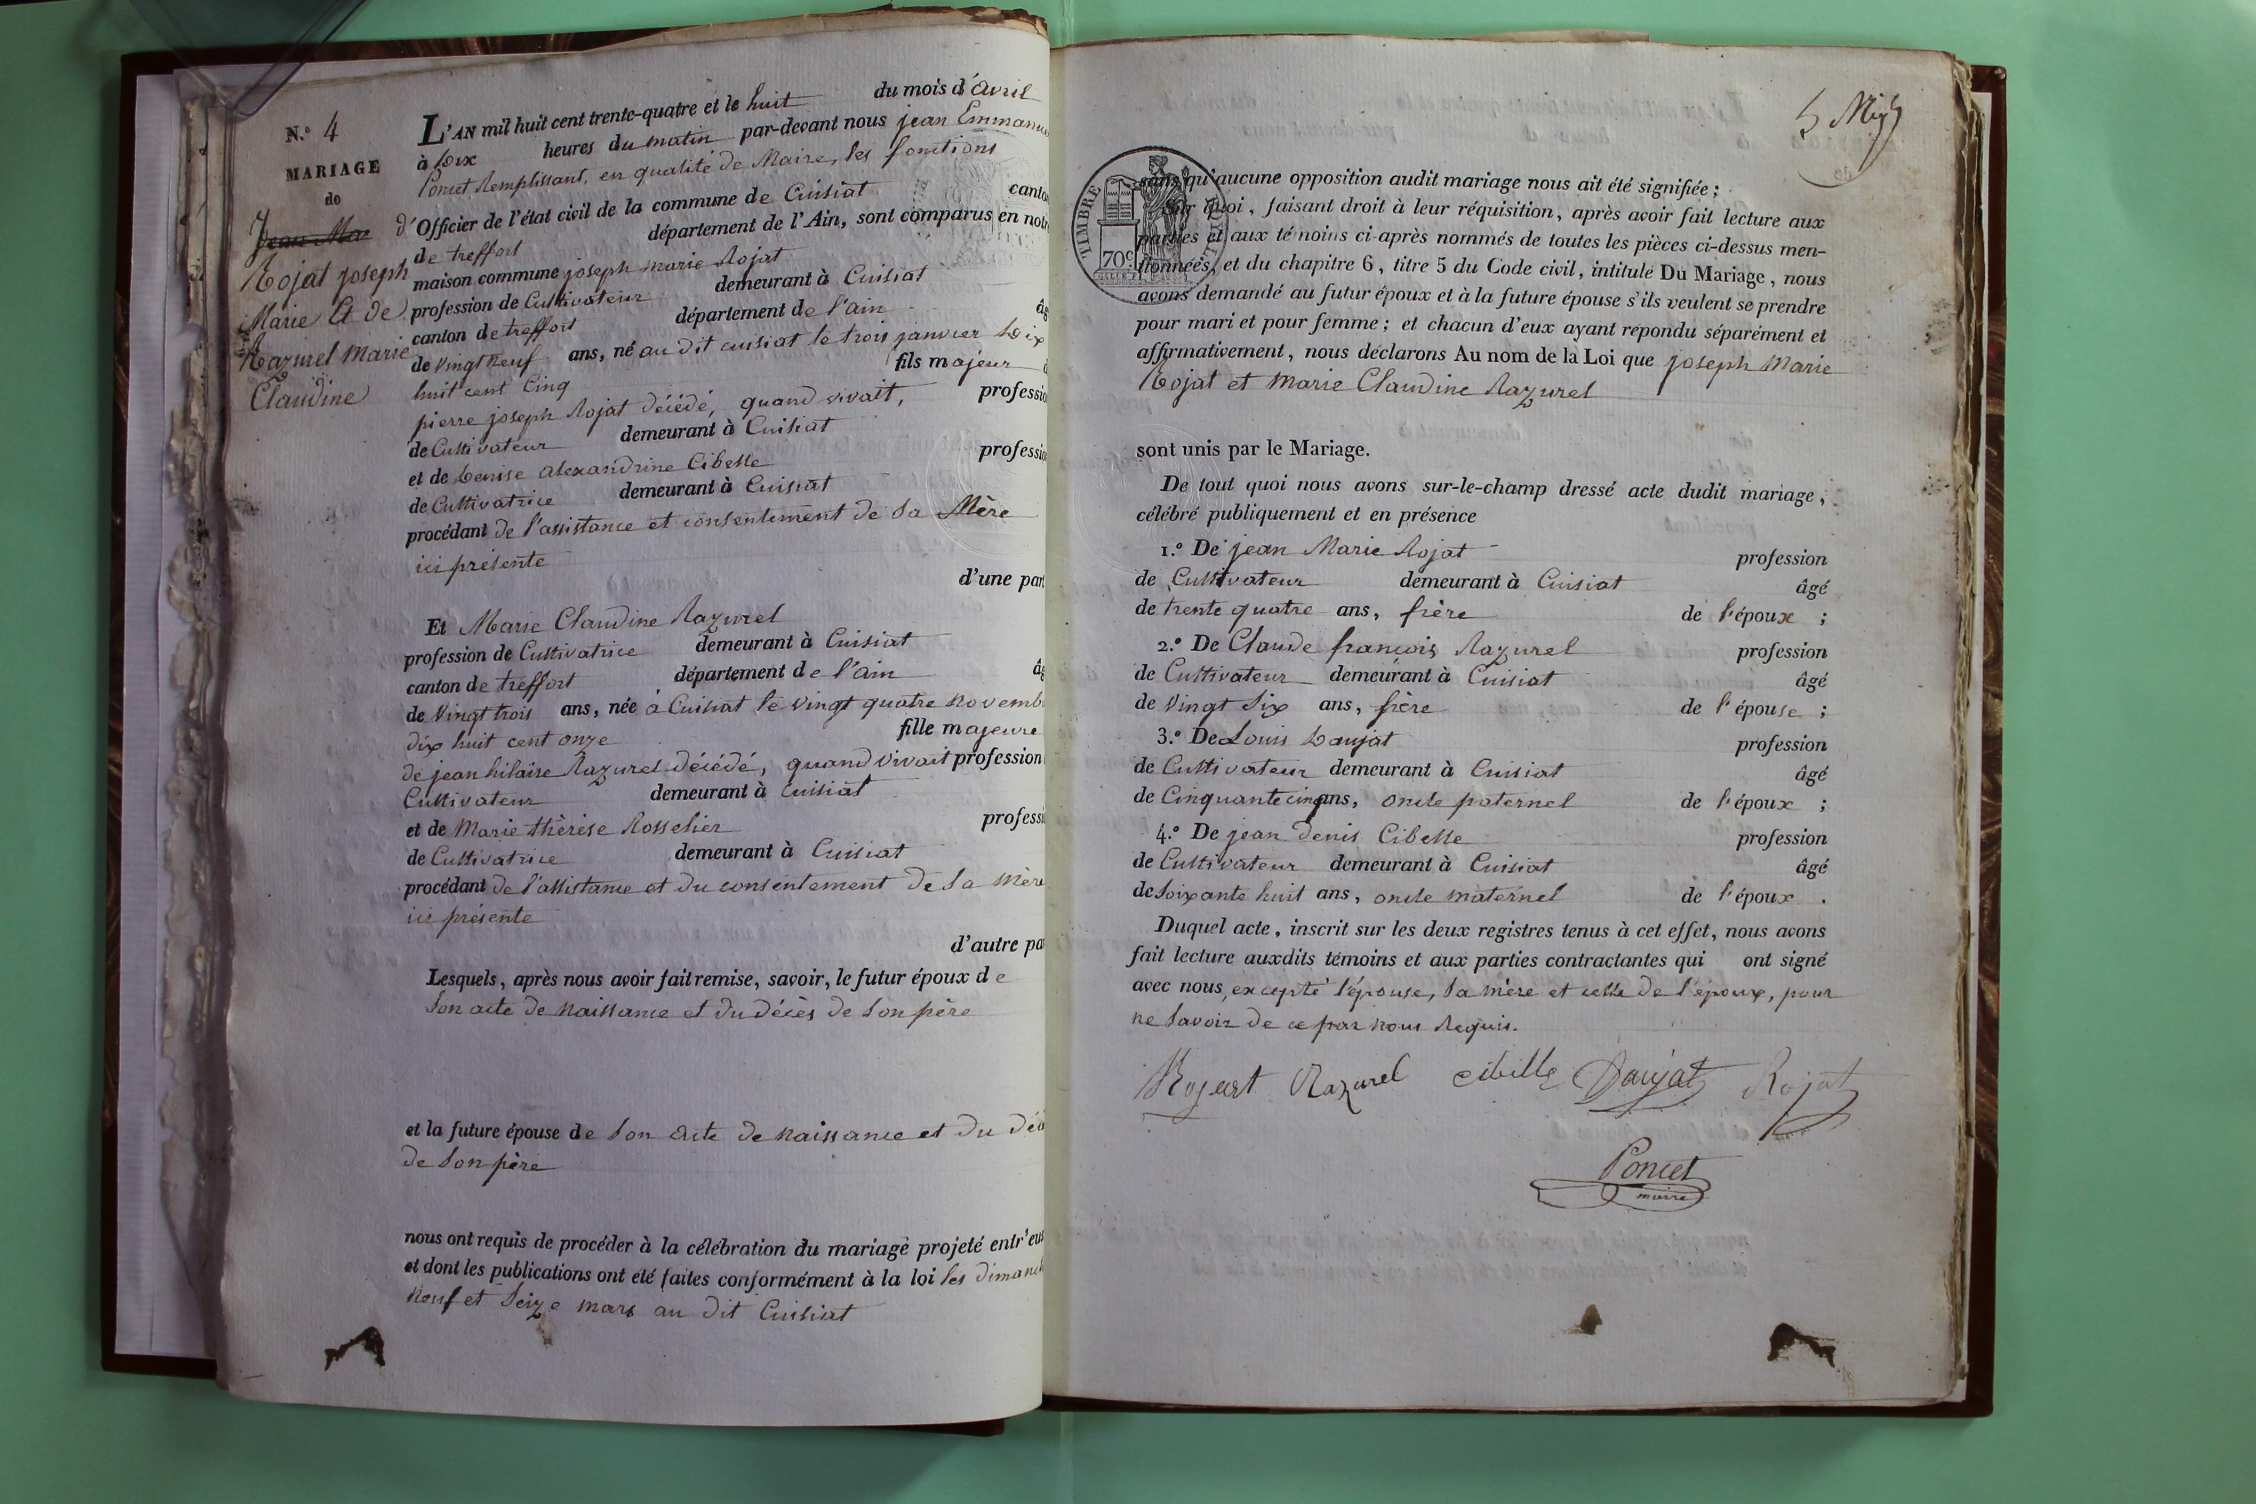 N.º 4
MARIAGE
de
Jean Mar
Rojat joseph
Marie Et de
Razurel Marie
Claudine
L'AN mil huit cent trente-quatre et le huit du mois d'avril
à Dix heures du matin par-devant nous jean Emmanu
Poncet Remplissant, en qualité de Maire, les fonctions
d'Officier de l'état civil de la commune de Cuisiat canto
de treffort département de l'Ain, sont comparus en notr
maison commune joseph marie Rojat
profession de Cultivateur demeurant à Cuisiat
canton de treffort département de l'ain âg
de Vingt neuf ans, né au dit cuisiat le trois janvier Dix
huit cent Cinq fils majeur d
pierre joseph Rojat décédé, quand vivait, professio
de Cultivateur demeurant à Cuisiat
et de Denise alexandrine Cibelle professio
de Cultivatrice demeurant à Cuisiat
procédant de l'assistance et consentement de sa Mère
ici présente
d'une part
Et Marie Claudine Razurel
profession de Cultivatrice demeurant à Cuisiat
canton de treffort département de l'ain âg
de Vingt trois ans, née à Cuisiat le vingt quatre novemb
dix huit cent onze fille majeure
de jean hilaire Razurel décédé, quand vivait profession
Cultivateur demeurant à Cuisiat
et de Marie thérèse Rosselier professi
de Cultivatrice demeurant à Cuisiat
procédant de l'assistance et du consentement de sa mère
ici présente
d'autre pa
Lesquels, après nous avoir fait remise, savoir, le futur époux de
Son acte de naissance et du décès de Son père
et la future épouse de Son acte de naissance et du déc
de Son père
nous ont requis de procéder à la célébration du mariage projeté entr'eux
et dont les publications ont été faites conformément à la loi les dimanch
neuf et Seize mars au dit Cuisiat
5
TIMBRE
70 c.
sans qu'aucune opposition audit mariage nous ait été signifiée ;
Sur quoi, faisant droit à leur réquisition, après avoir fait lecture aux
parties et aux témoins ci-après nommés de toutes les pièces ci-dessus men-
tionnées, et du chapitre 6, titre 5 du Code civil, intitulé Du Mariage, nous
avons demandé au futur époux et à la future épouse s'ils veulent se prendre
pour mari et pour femme ; et chacun d'eux ayant répondu séparément et
affirmativement, nous déclarons Au nom de la Loi que joseph Marie
Rojat et Marie Claudine Razurel
sont unis par le Mariage.
De tout quoi nous avons sur-le-champ dressé acte dudit mariage,
célébré publiquement et en présence
1.º De jean Marie Rojat profession
de Cultivateur demeurant à Cuisiat âgé
de trente quatre ans, frère de l'époux ;
2.º De Claude françois Razurel profession
de Cultivateur demeurant à Cuisiat âgé
de Vingt Six ans, frère de l'épouse ;
3.º De Louis Daujat profession
de Cultivateur demeurant à Cuisiat âgé
de Cinquante cinq ans, oncle paternel de l'époux ;
4.º De jean Denis Cibelle profession
de Cultivateur demeurant à Cuisiat âgé
de Soixante huit ans, oncle maternel de l'époux .
Duquel acte, inscrit sur les deux registres tenus à cet effet, nous avons
fait lecture auxdits témoins et aux parties contractantes qui ont signé
avec nous, excepté l'épouse, Sa mère et celle de l'époux, pour
ne Savoir de ce par nous Requis.
Rojeat Razurel cibille Daujat Rojat
Poncet
maire